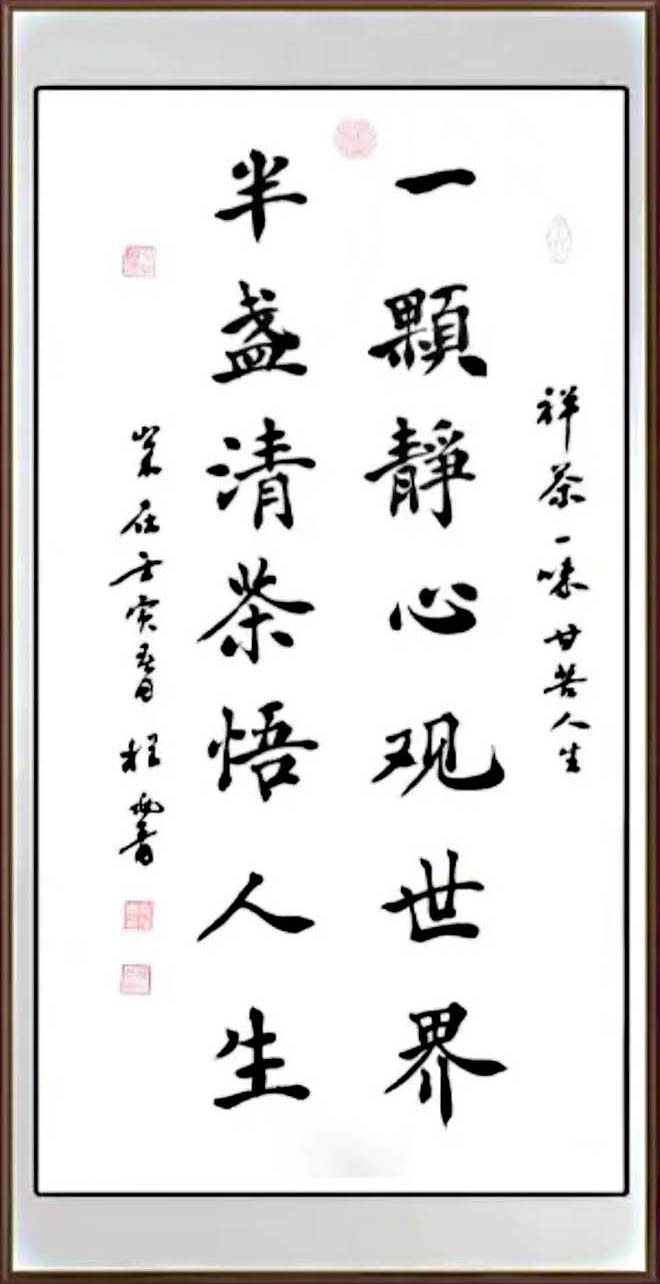 祥茶一味甘苦人生
一顆靜心观世界
半盏清茶悟人生
岁在壬寅春月 程